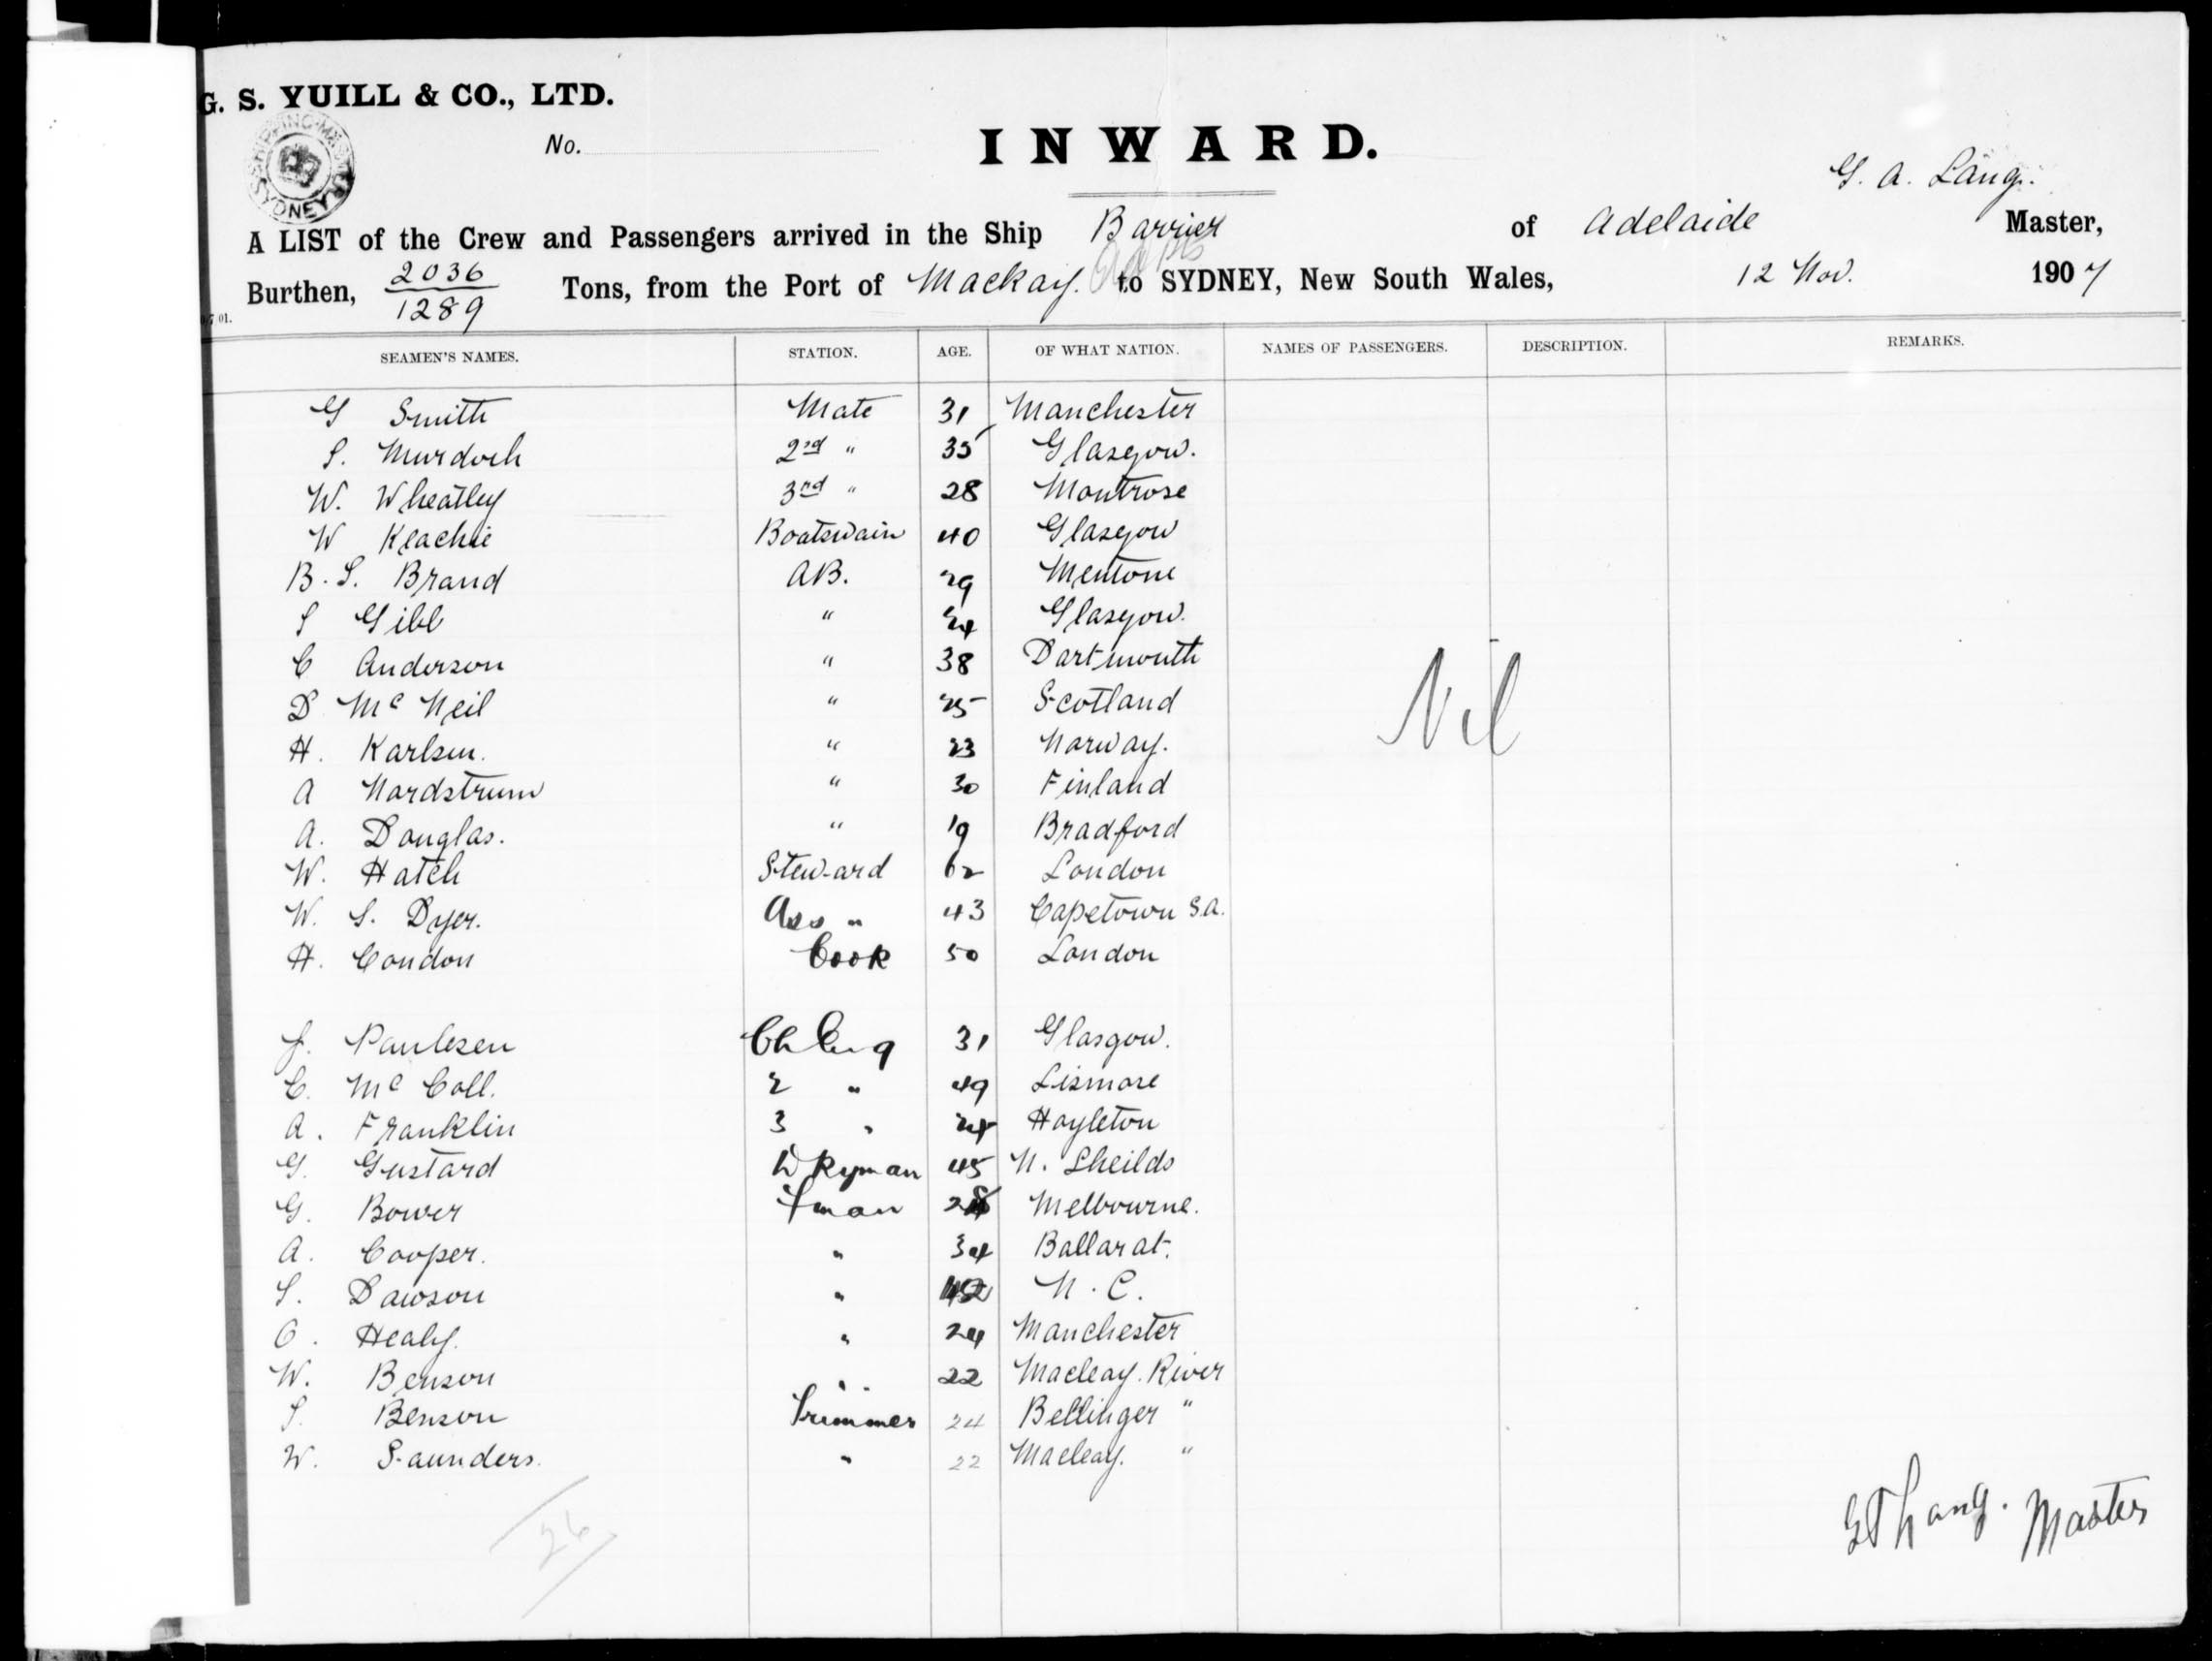 G. S. YUILL & CO., LTD.
SHIPPING MASTER SYDNEY
No.
INWARD.
G. A. Lang.
A LIST of the Crew and Passengers arrived in the Ship Barrier of Adelaide Master,
Burthen, 2036 / 1289 Tons, from the Port of Mackay. to SYDNEY, New South Wales, 12 Nov. 1907
SEAMEN'S NAMES. STATION. AGE. OF WHAT NATION. NAMES OF PASSENGERS. DESCRIPTION. REMARKS.
G Smith Mate 31 Manchester
S. Murdoch 2nd " 35 Glasgow.
W. Wheatley 3rd " 28 Montrose
W Keachie Boatswain 40 Glasgow
B. S. Brand AB. 29 Mentone
S Gibb " 24 Glasgow.
C Anderson " 38 Dartmouth
D Mc Neil " 25 Scotland
H. Karlsen. " 23 Norway.
A Nordstrum " 30 Finland
A. Douglas. " 19 Bradford
W. Hatch Steward 62 London
W. S. Dyer. Ass " 43 Capetown S.A.
H. Condon Cook 50 London
Nil
J. Paulesen Ch Eng 31 Glasgow.
C. Mc Coll. 2 " 49 Lismore
A. Franklin 3 " 24 Hoyleton
G. Gustard Dkyman 45 N. Sheilds
G. Bower Fman 28 Melbourne.
A. Cooper. " 34 Ballarat.
S. Dawson " 42 N. C.
O. Healy. " 24 Manchester
W. Benson " 22 Macleay. River
S. Benson Trimmer 24 Bellinger "
W. Saunders. " 22 Macleay. "
26
Lang. Master